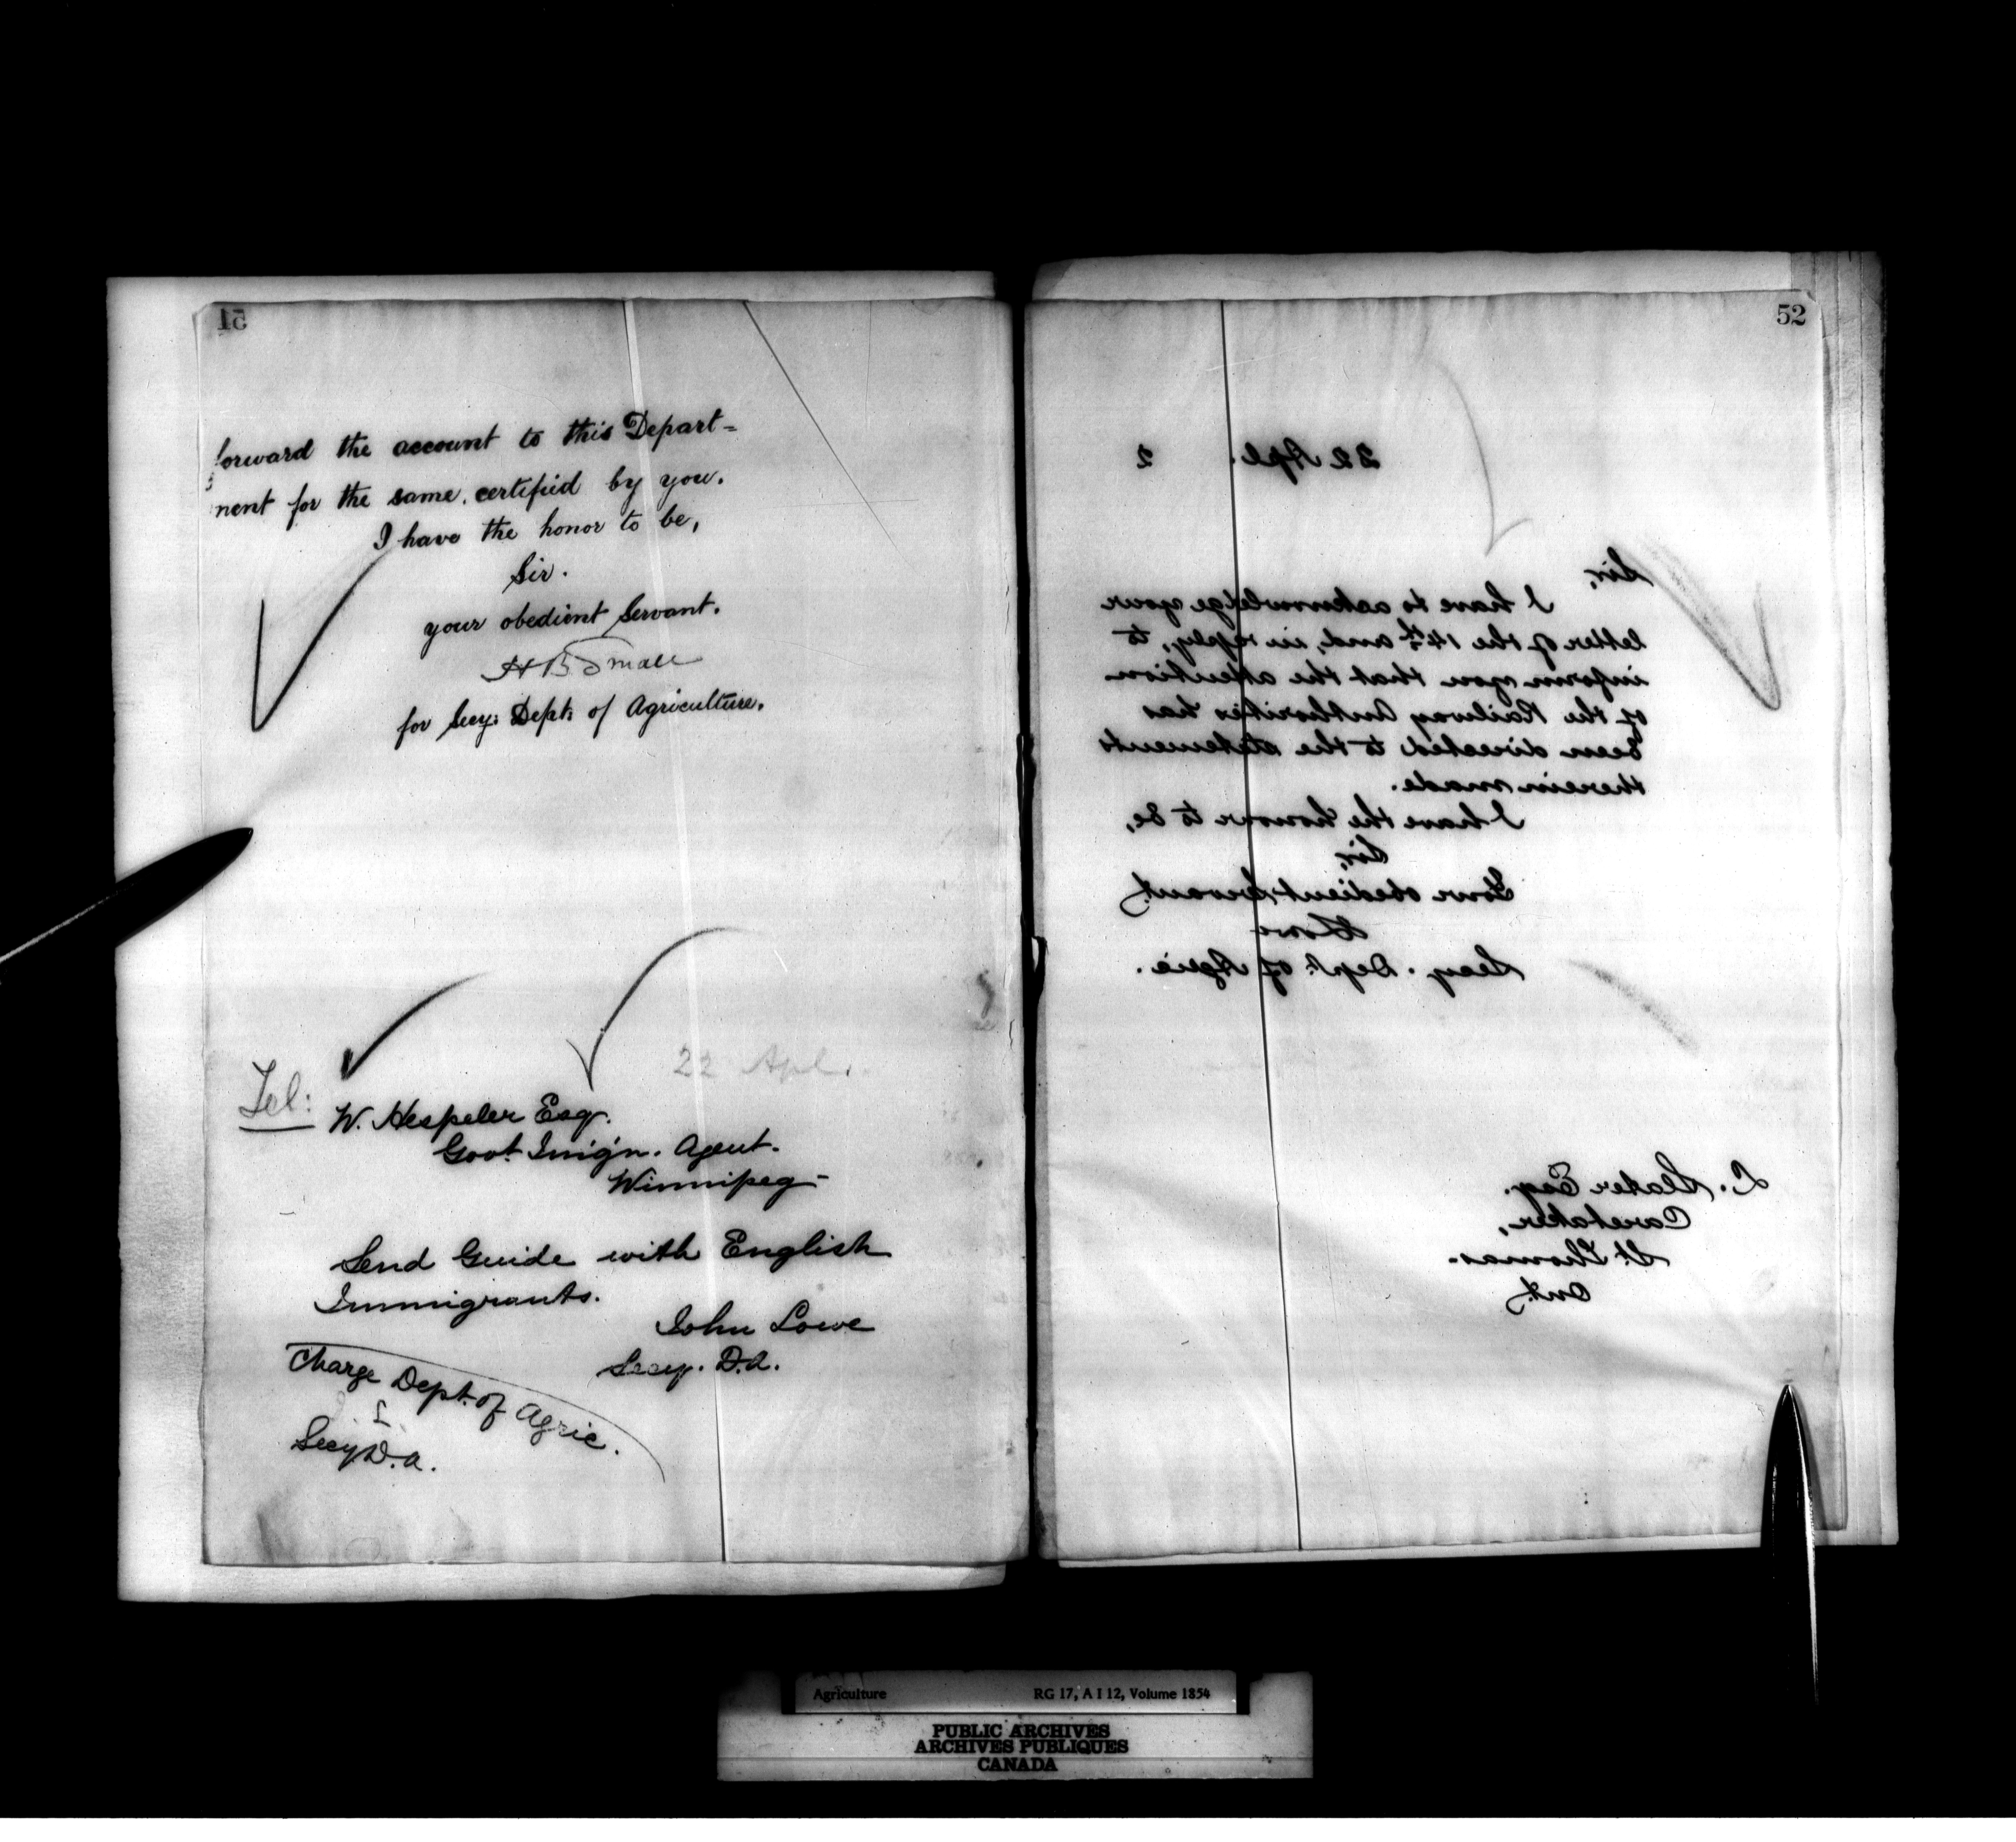 51
forward the account to this Depart=
ment for the same, certified by you.
I have the honor to be,
Sir.
your obedient Servant.
H B Small
for Secy: Dept: of Agriculture.
22 Apl.
Tel: W. Hespeler Esq.
Govt. Imig'n. Agent.
Winnipeg-
Send Guide with English
Immigrants.
John Lowe
Secy. D.A.
Charge Dept. of Agric.
L
Secy D.A.
52
22 Apl. 2
Sir,
I have to acknowledge your
letter of the 14th and, in reply, to
inform you that the attention
of the Railway Authorities has
been directed to the statements
therein made.
I have the honour to be,
Sir,
Your obedient Servant,
Lowe
Secy. Dept. of Agric.
L. Slater Esq.
Caretaker,
St. Thomas.
Ont.
Agriculture RG 17, A I 12, Volume 1854
PUBLIC ARCHIVES
ARCHIVES PUBLIQUES
CANADA